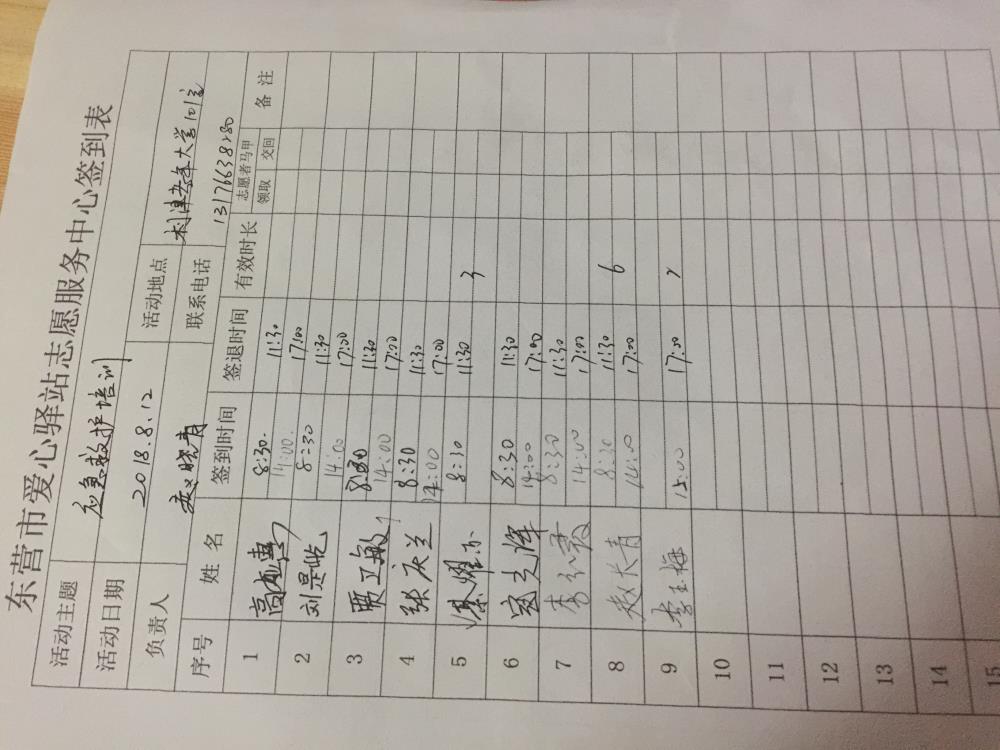 东营市爱心驿站志愿服务中心签到表
活动主题 应急救护培训
活动日期 2018.8.12 活动地点 利津老年大学101室
负责人 晓青 联系电话 13176638280
序号 姓名 签到时间 签退时间 有效时长 志愿者马甲 领取 交回 备注
1 8:30 11:30
14:00 17:00
2 刘是屹 8:30 11:30
14:00 17:00
3 贾卫敏 8:30 11:30
14:00 17:00
4 张庆兰 8:30 11:30
14:00 17:00
5 8:30 11:30 3
6 8:30 11:30
14:00 17:00
7 李 8:30 11:30
14:00 17:00
8 赵长青 8:30 11:30 6
14:00 17:00
9 李玉梅 15:00 17:00 2
10
11
12
13
14
15